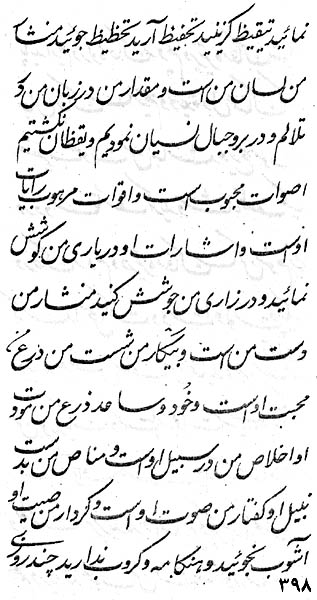 نمائید تیقیظ گزینید تحفیظ آرید تخطیط جوئید منشأ
من لسان من است و مقدار من در زبان من و
تلالم و در بر و جبال نسیان نمودیم و یقظان نگشتیم
اصوات محبوب است و اقوات مرهوب رایات
او است و اشارات او در یاری من کوشش
نمائید و در زاری من جوشش کنید منشار من
دست من است و بیگار من شست من درع من
محبت او است و خود و ساعد ذرع من مودت
او اخلاص من در سبیل او است و مناص من بدست
نبیل او گفتار من صوت او است و کردار من صیت او
آشوب نجوئید و هنگامه و کروب ندارید چند روزی
۳۹۸